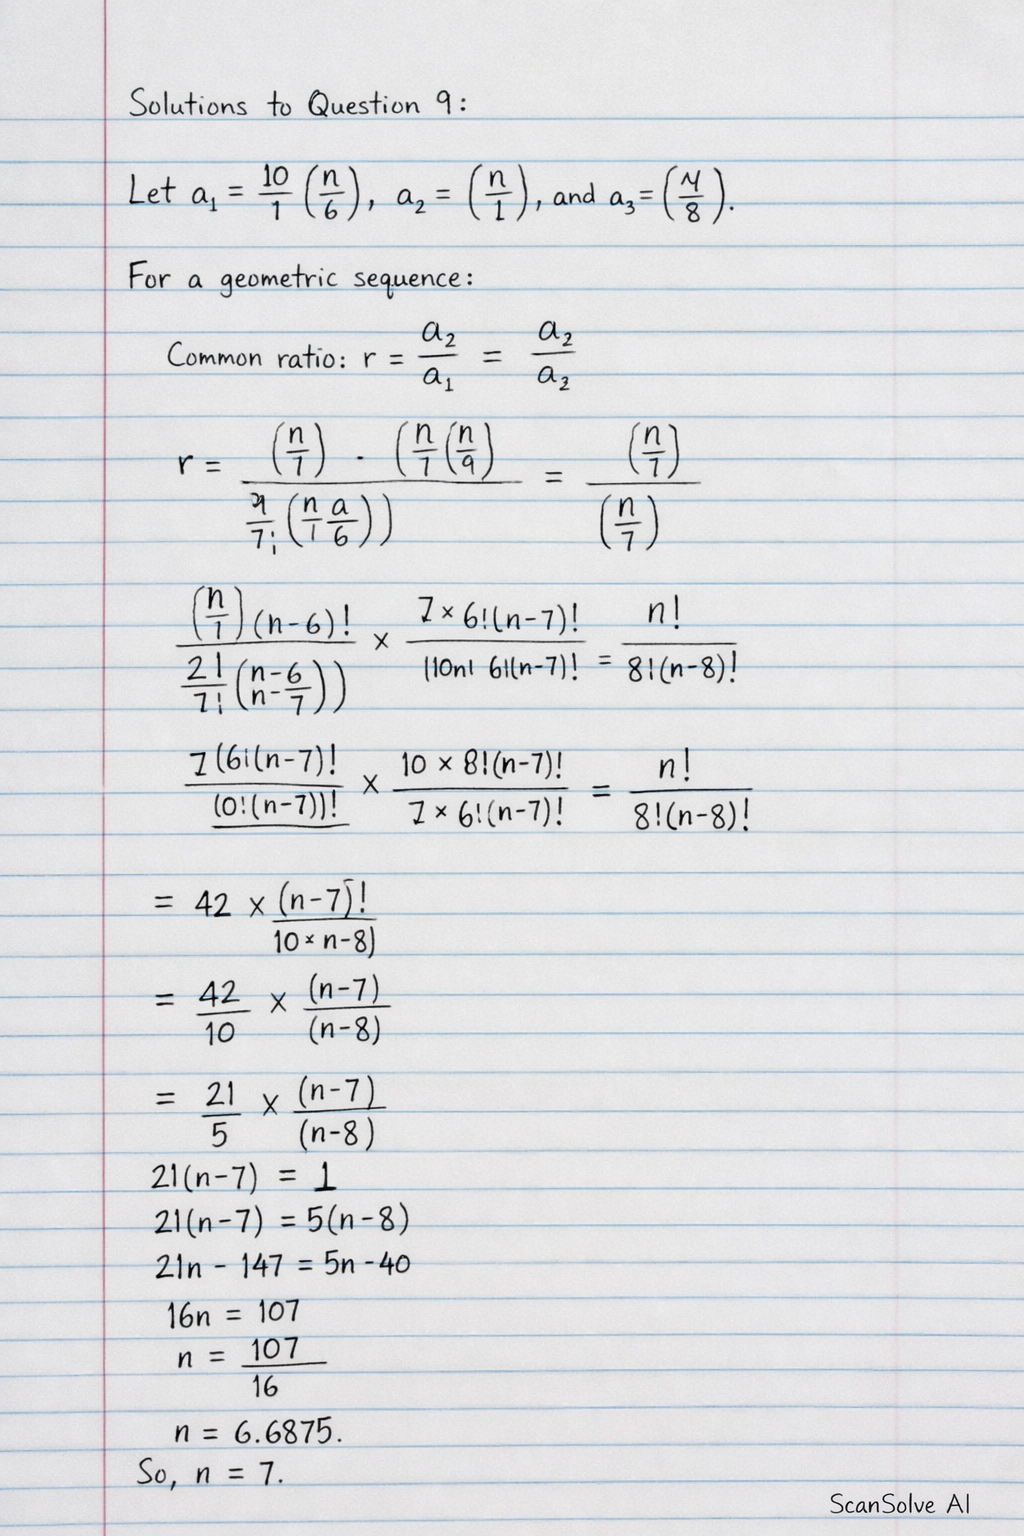 Solutions to Question 9:
Let a₁ = 10/1 (n/6), a₂ = (n/1), and a₃ = (N/8).
For a geometric sequence:
Common ratio: r = a₂/a₁ = a₂/a₂
r = (n/7) · (n/7 (n/9) / = (n/7) / (n/7)
(n/1)(n-6)! / × 7 × 6!(n-7)! / (10n! 6!(n-7)! = n! / 8!(n-8)!
7(6!(n-7)! / (0!(n-7))! × 10 × 8!(n-7)! / 7 × 6!(n-7)! = n! / 8!(n-8)!
= 42 × (n-7)! / 10 × n-8)
= 42/10 × (n-7)/(n-8)
= 21/5 × (n-7)/(n-8)
21(n-7) = 1
21(n-7) = 5(n-8)
21n - 147 = 5n-40
16n = 107
n = 107/16
n = 6.6875.
So, n = 7.
ScanSolve AI